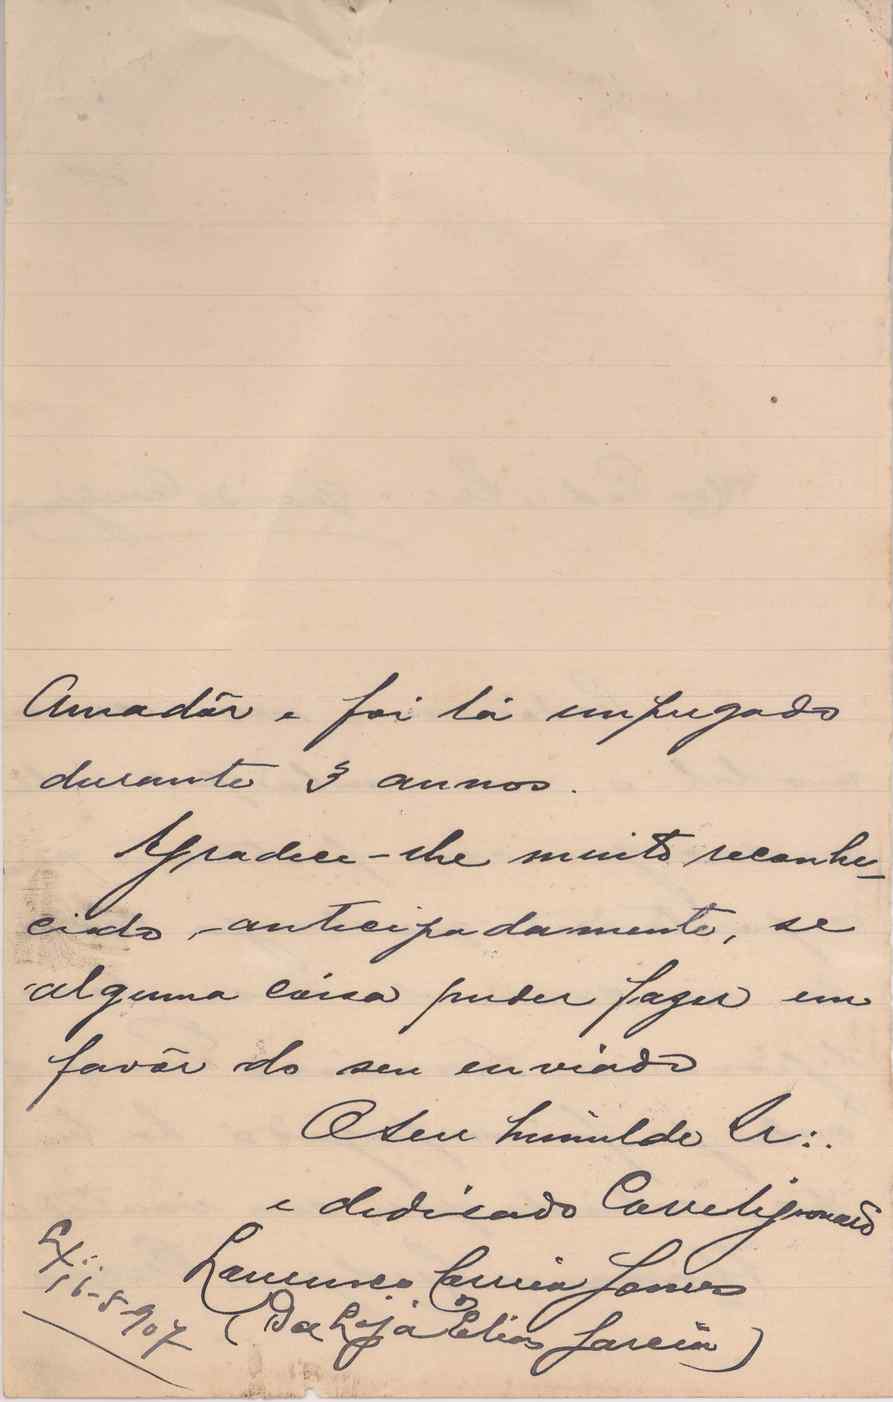 Amadôr e foi lá empregado
durante 3 annos.
Agradece-lhe muito reconhe-
cido, anticipadamente, se
alguma cousa puder fazer em
favôr do seu enviado
O seu humilde Ir∴
e dedicado Correligionario
Lourenço Correia Gomes
(Da Loja Elias Garcia)
Lx∴
16-8-907